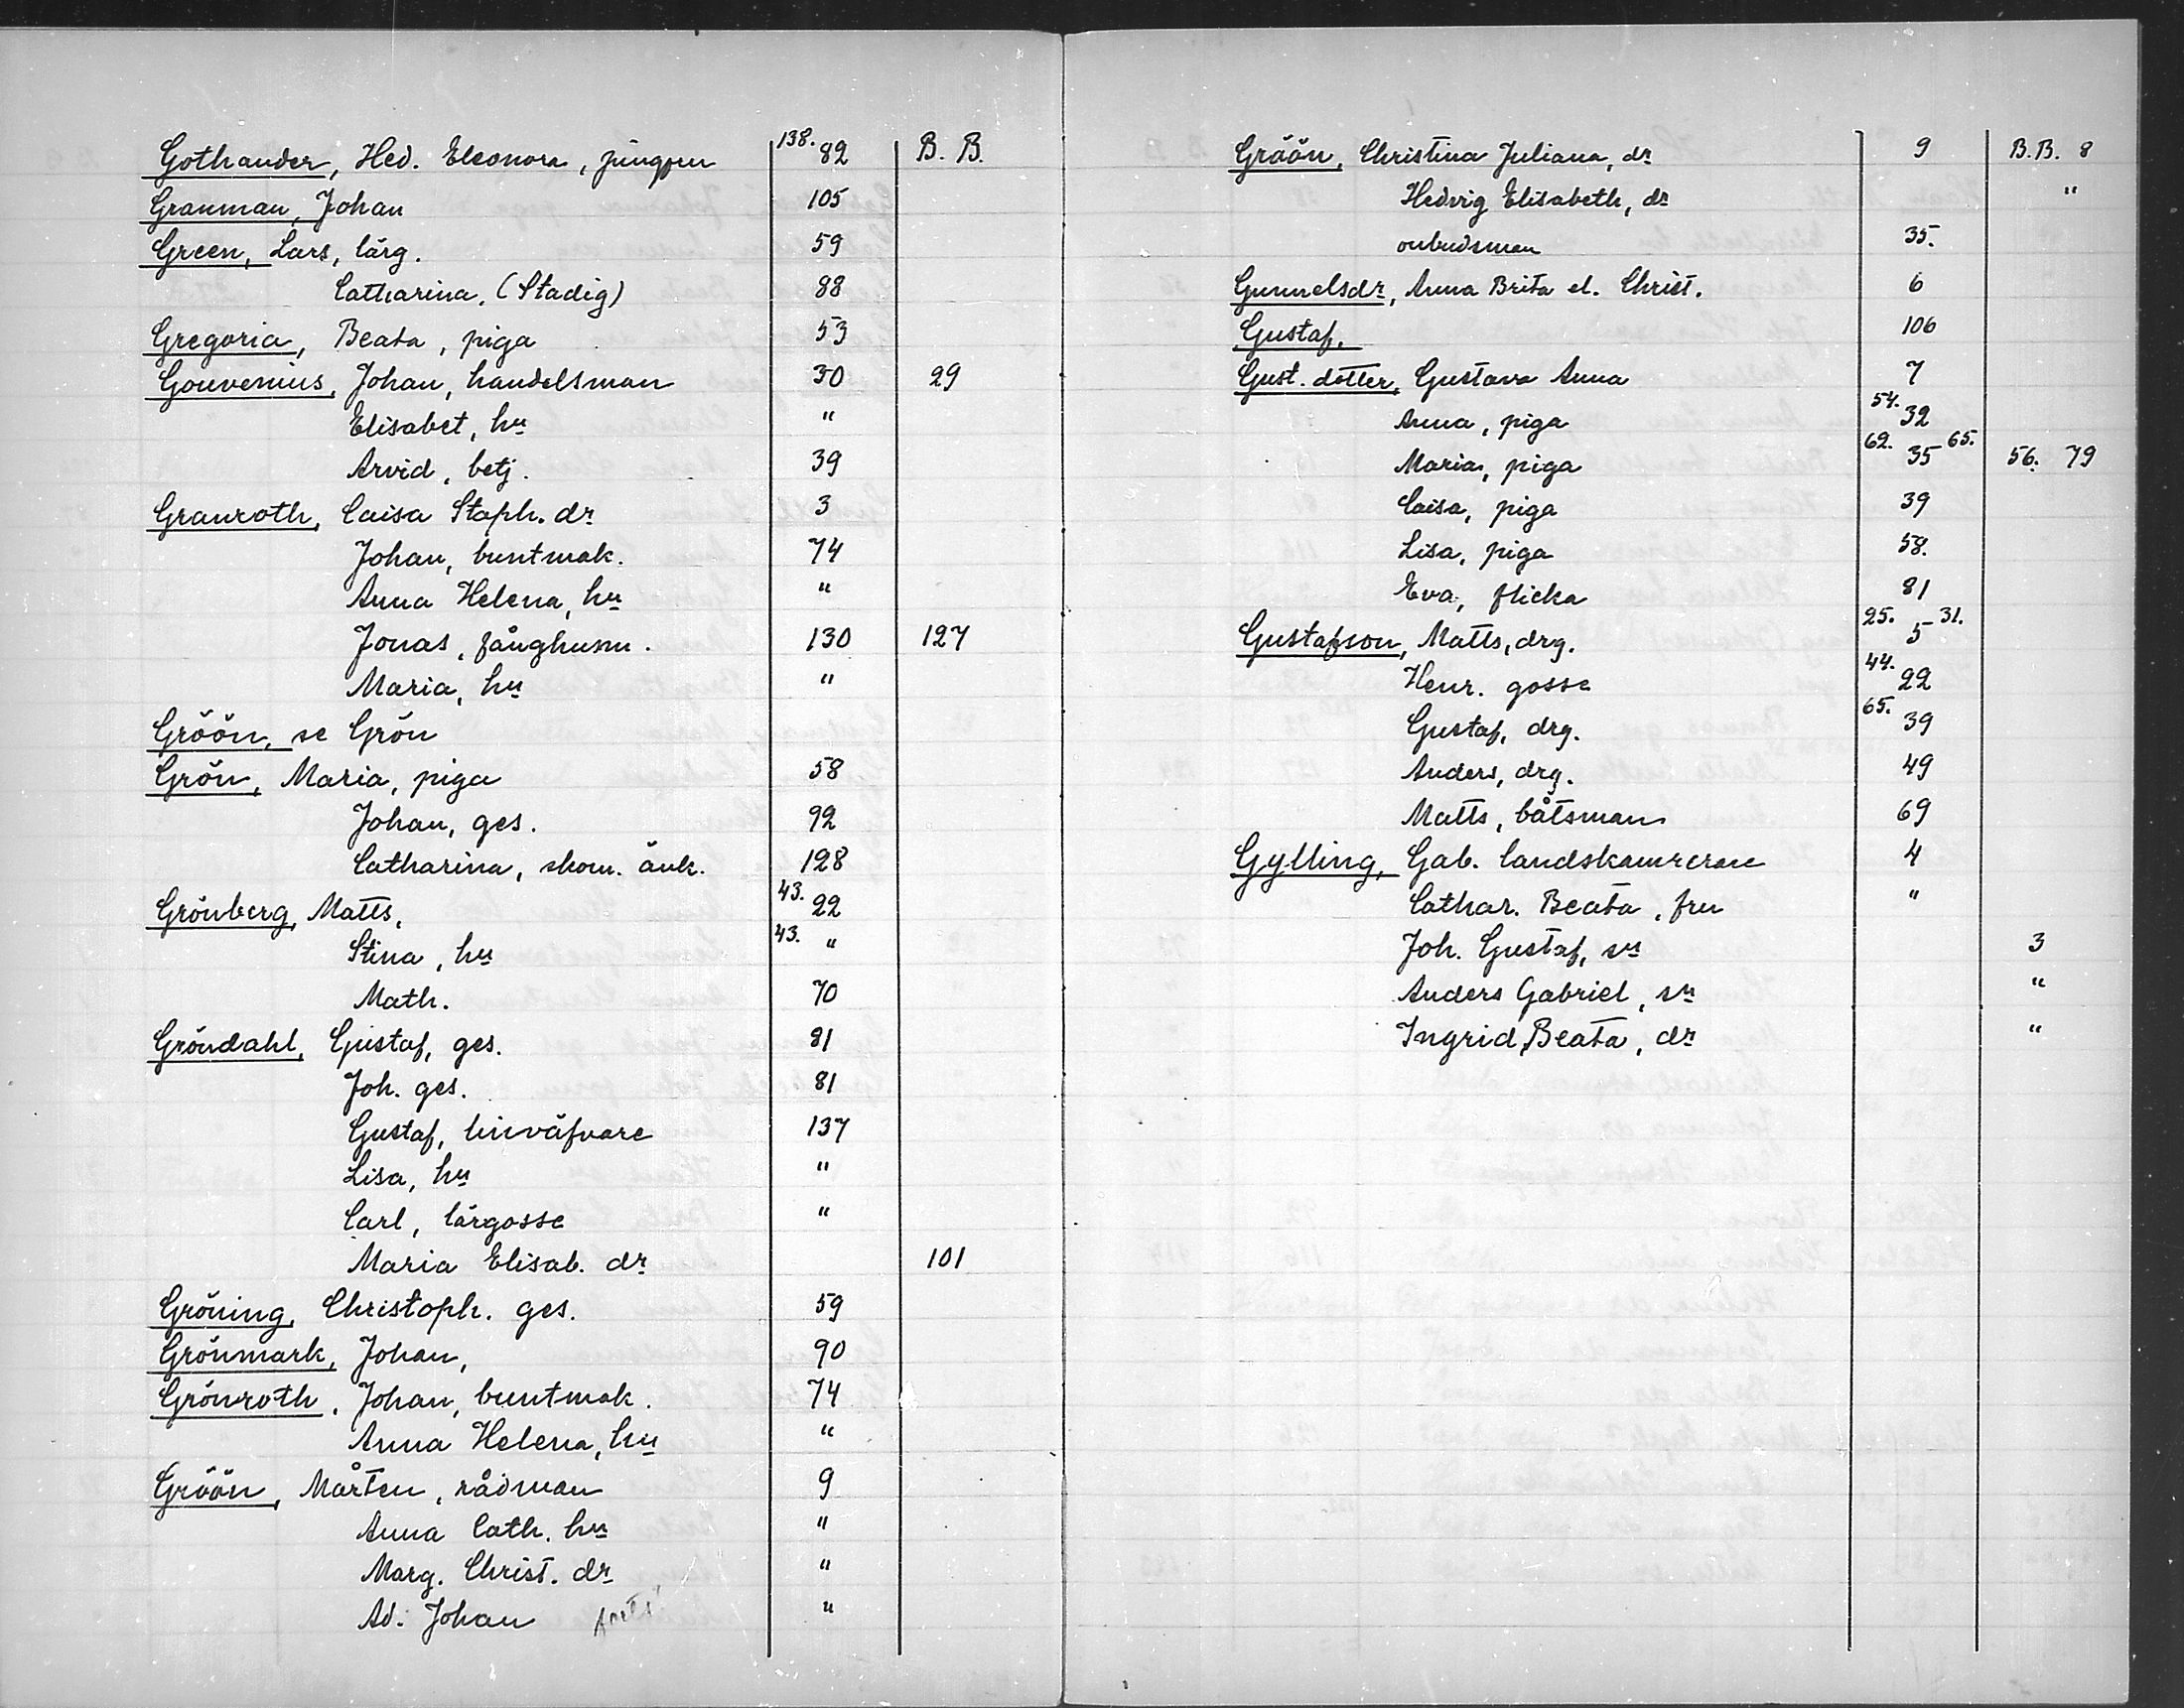 Gothander, Hed. Eleonora, jungfru 138. 82 B. B.
Granman, Johan 105
Green, Lars, lärg. 59
Catharina, (Stadig) 88
Gregoria, Beata, piga 53
Gouvenius, Johan, handelsman 30 29
Elisabet, hu "
Arvid, betj. 39
Granroth, Caisa Staph. dr 3
Johan, buntmak. 74
Anna Helena, hu "
Jonas, fånghusm. 130 127
Maria, hu "
Gröön, se Grön
Grön, Maria, piga 58
Johan, ges. 92
Catharina, skom. änk. 128
Grönberg, Matts, 43. 22
Stina, hu 43. "
Math. 70
Gröndahl, Gustaf, ges. 81
Joh. ges. 81
Gustaf, linväfvare 137
Lisa, hu "
Carl, lärgosse "
Maria Elisab. dr 101
Gröning, Christoph. ges. 59
Grönmark, Johan, 90
Grönroth, Johan, buntmak. 74
Anna Helena, hu "
Gröön, Mårten, rådman 9
Anna Cath. hu "
Marg. Christ. dr "
Ad. Johan "
Gröön, Christina Juliana, dr 9 B.B. 8
Hedvig Elisabeth, dr "
ombudsman 35.
Gunnelsdr, Anna Brita el. Christ. 6
Gustaf, 106
Gust. dotter, Gustava Anna 7
Anna, piga 54. 32
Maria, piga 62. 35 65. 56. 79
Caisa, piga 39
Lisa, piga 58.
Eva, flicka 81
Gustafson, Matts, drg. 25. 5 31.
Henr. gosse 44. 22
Gustaf, drg. 65. 39
Anders, drg. 49
Matts, båtsman 69
Gylling, Gab. landskamrerare 4
Cathar. Beata, fru "
Joh. Gustaf, sn 3
Anders Gabriel, sn "
Ingrid Beata, dr "